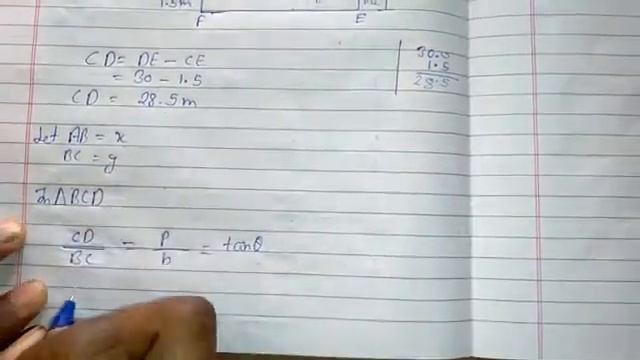 1.5m
F
E
CD = DE - CE
= 30 - 1.5
CD = 28.5m
30.0
1.5
28.5
Let AB = x
BC = y
In ΔBCD
CD/BC = P/b = tanθ